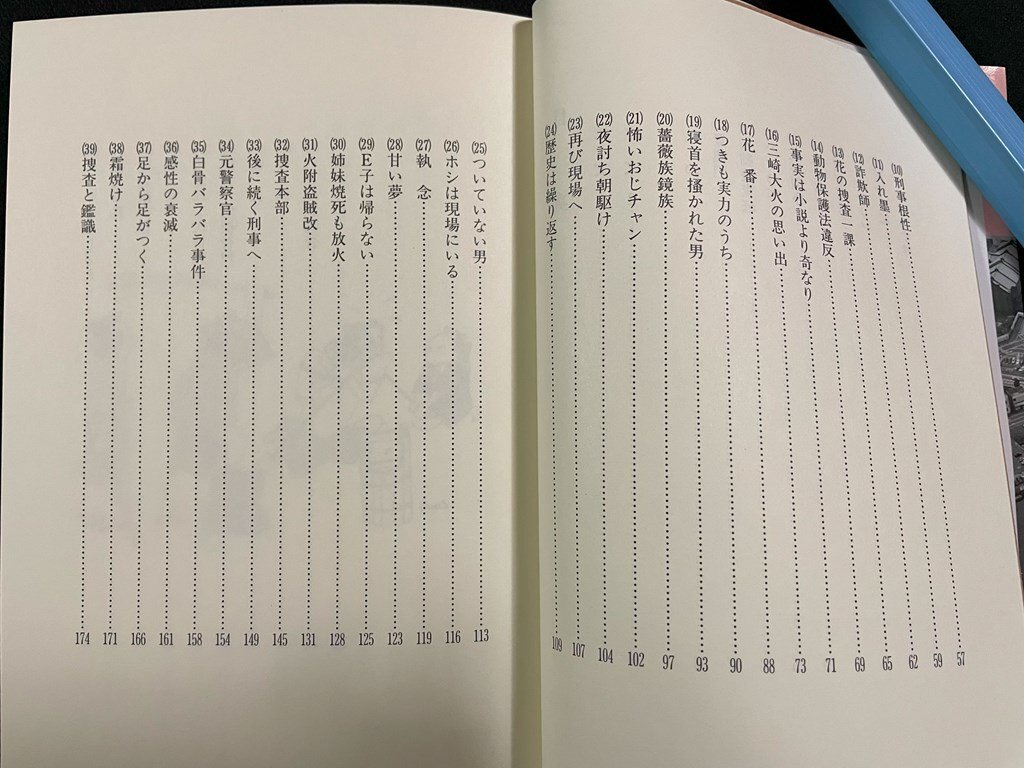 (10) 刑事根性……57
(11) 入れ墨……59
(12) 詐欺師……62
(13) 花の捜査一課……65
(14) 動物保護法違反……69
(15) 事実は小説より奇なり……71
(16) 三崎大火の思い出……73
(17) 花　番……88
(18) つきも実力のうち……90
(19) 寝首を掻かれた男……93
(20) 薔薇族鏡族……97
(21) 怖いおじチャン……102
(22) 夜討ち朝駆け……104
(23) 再び現場へ……107
(24) 歴史は繰り返す……109
(25) ついていない男……113
(26) ホシは現場にいる……116
(27) 執　念……119
(28) 甘い夢……123
(29) E子は帰らない……125
(30) 姉妹焼死も放火……128
(31) 火附盗賊改……131
(32) 捜査本部……145
(33) 後に続く刑事へ……149
(34) 元警察官……154
(35) 白骨バラバラ事件……158
(36) 感性の衰滅……161
(37) 足から足がつく……166
(38) 霜焼け……171
(39) 捜査と鑑識……174